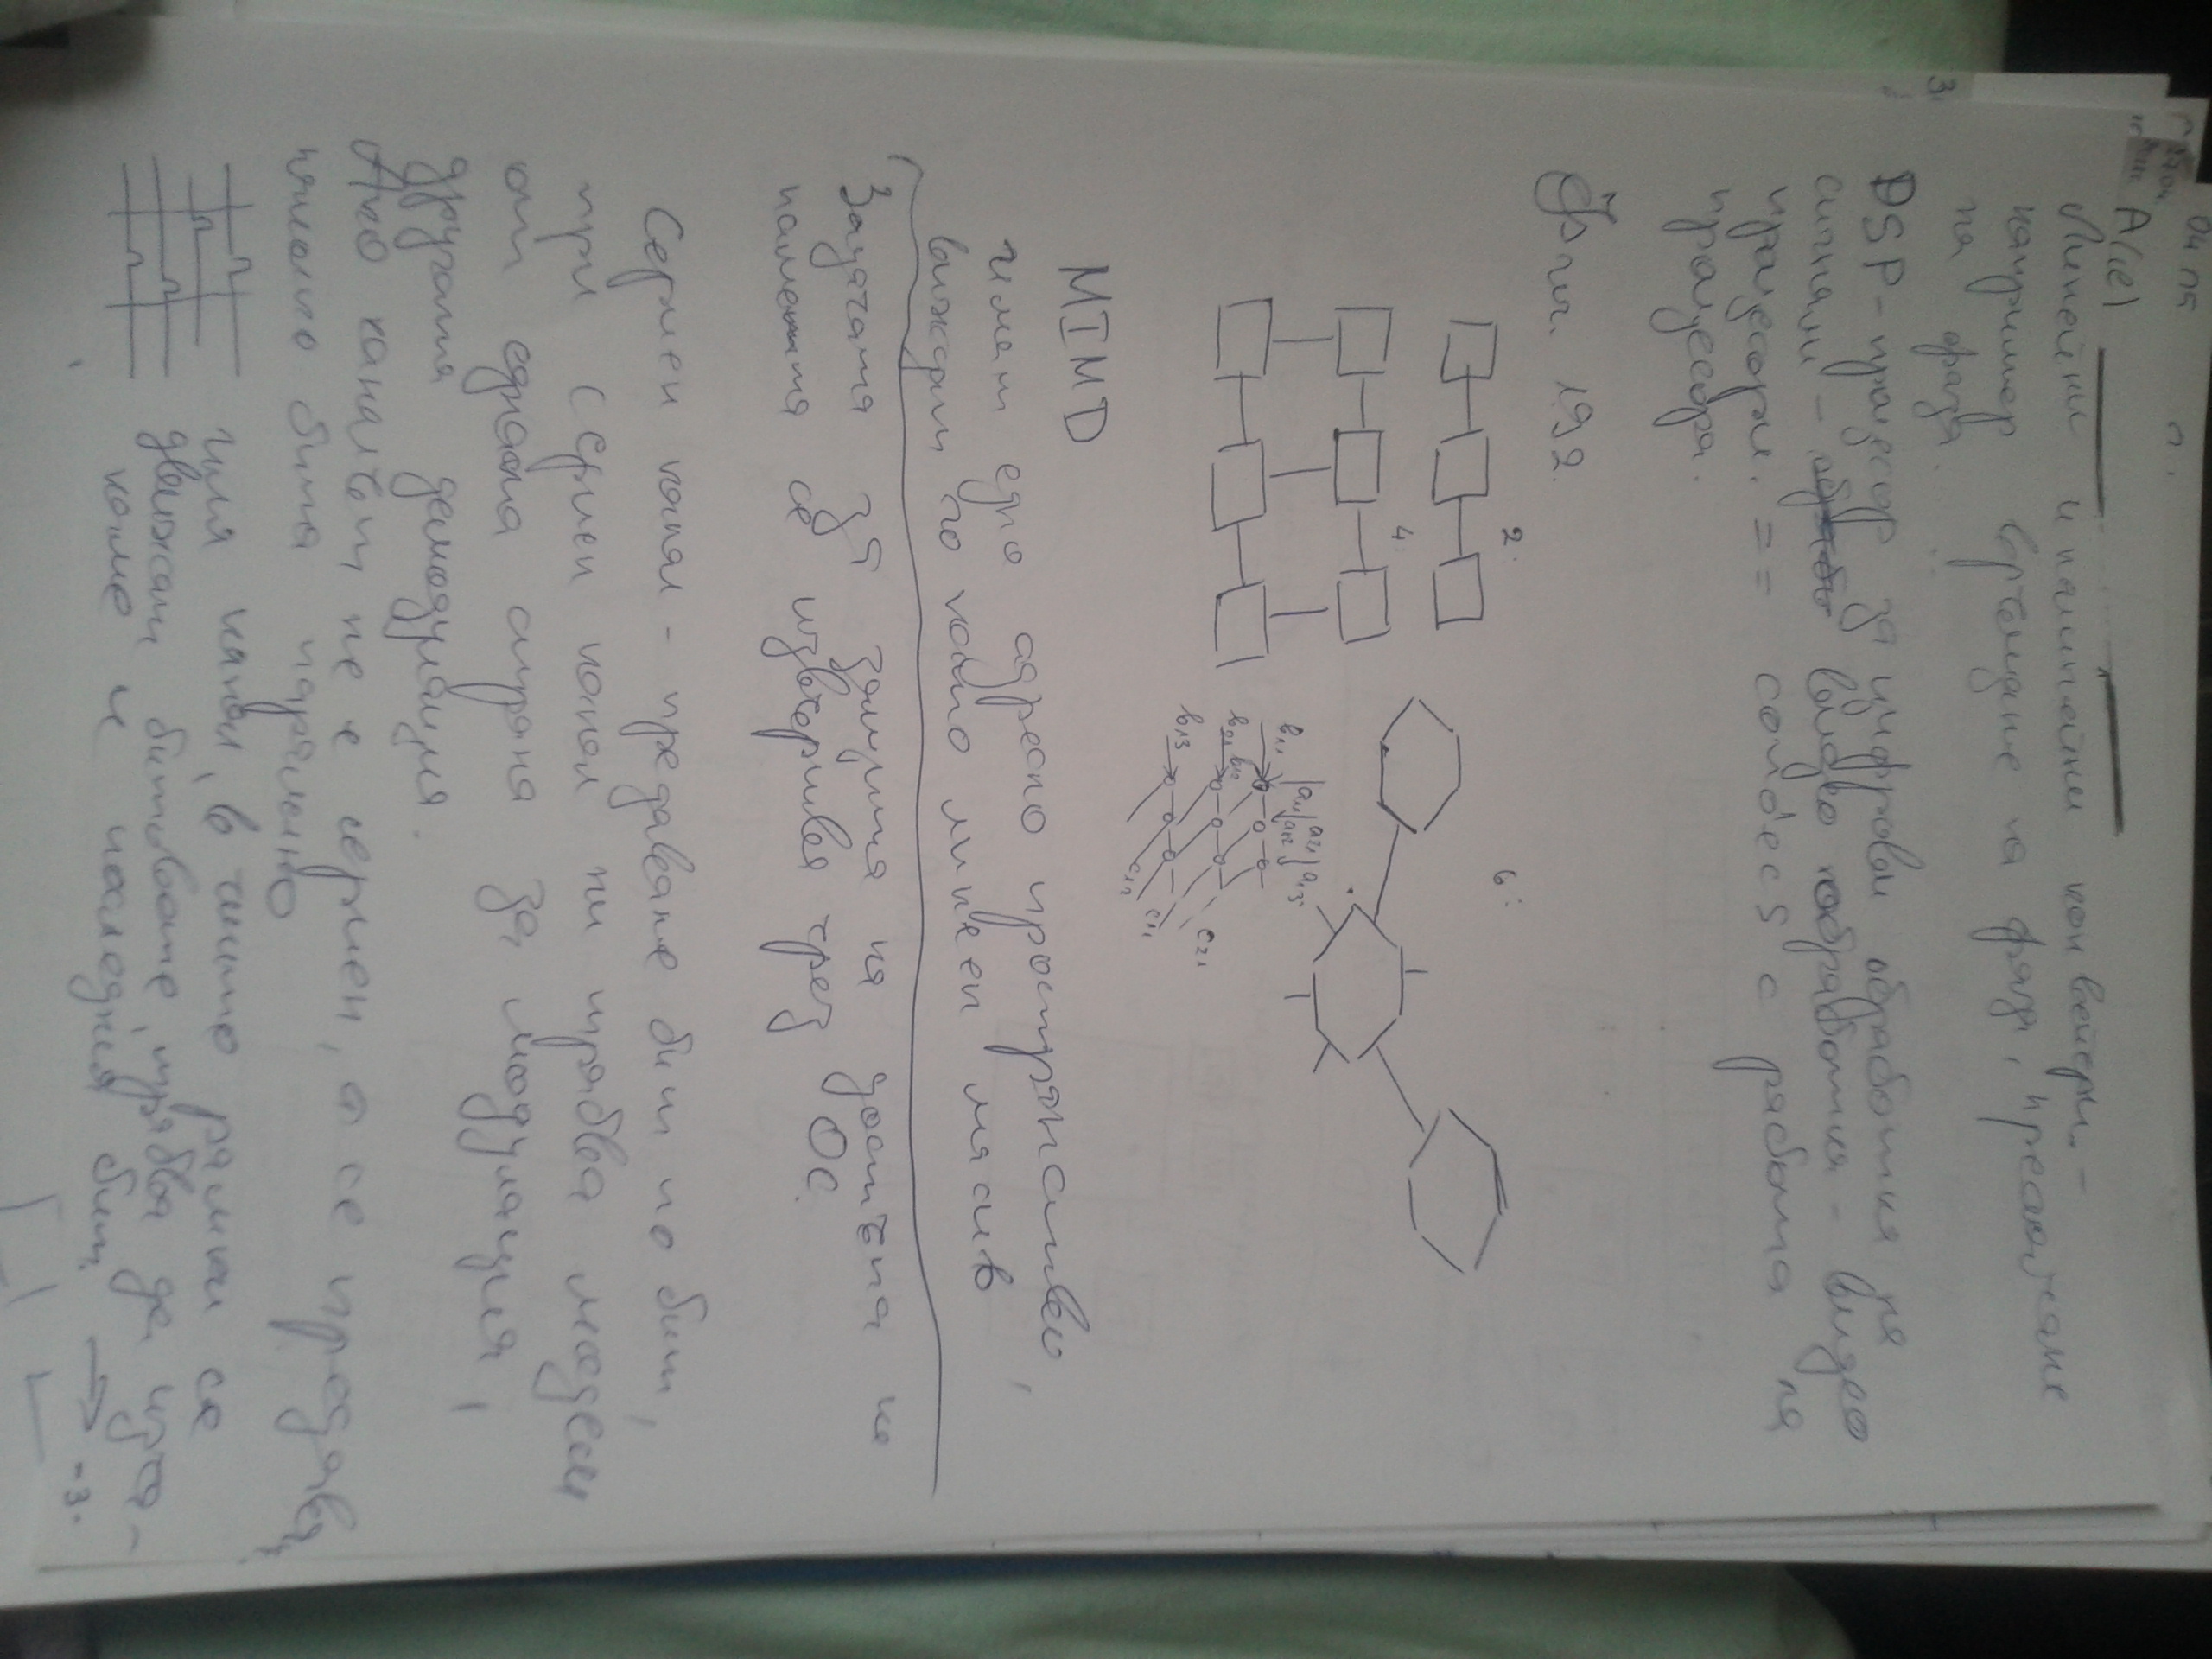 04 ПЯ
A(ie)
Линейни и нелинейни конвейери. -
например връщане на фаза, прескачане
на фаза.
DSP - процесор за цифрови обработка на
сигнали - видео обработка - видео
процесори. == с работа на
процесора.
Фиг. 192.
2:
6:
4:
a11 a21 a12 a13
b11
b21 b12
b13
c21
c11
c12
MIMD
имат едно адресно пространство,
виждат го като линеен масив
Задачата за защита на достъпа на
паметта се извършва чрез ОС.
Сериен канал - предаване бит по бит,
при сериен канал ни трябва модем
от едната страна за модулация,
другата демодулация.
Ако каналът не е сериен, а се предават
няколко бита паралелно
има канал, в чиито рамки се
движат битовете, трябва да изча-
каме и последния бит. → -3-